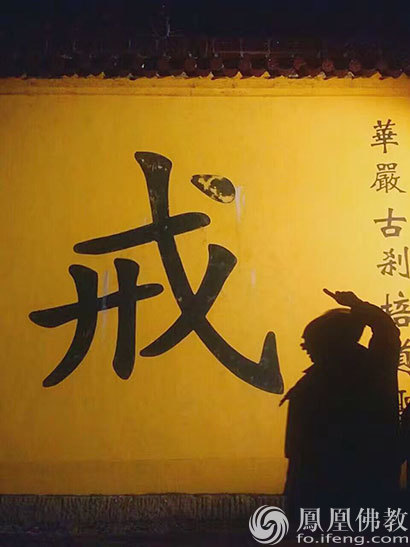 戒
華嚴古刹培
鳳凰佛教
fo.ifeng.com